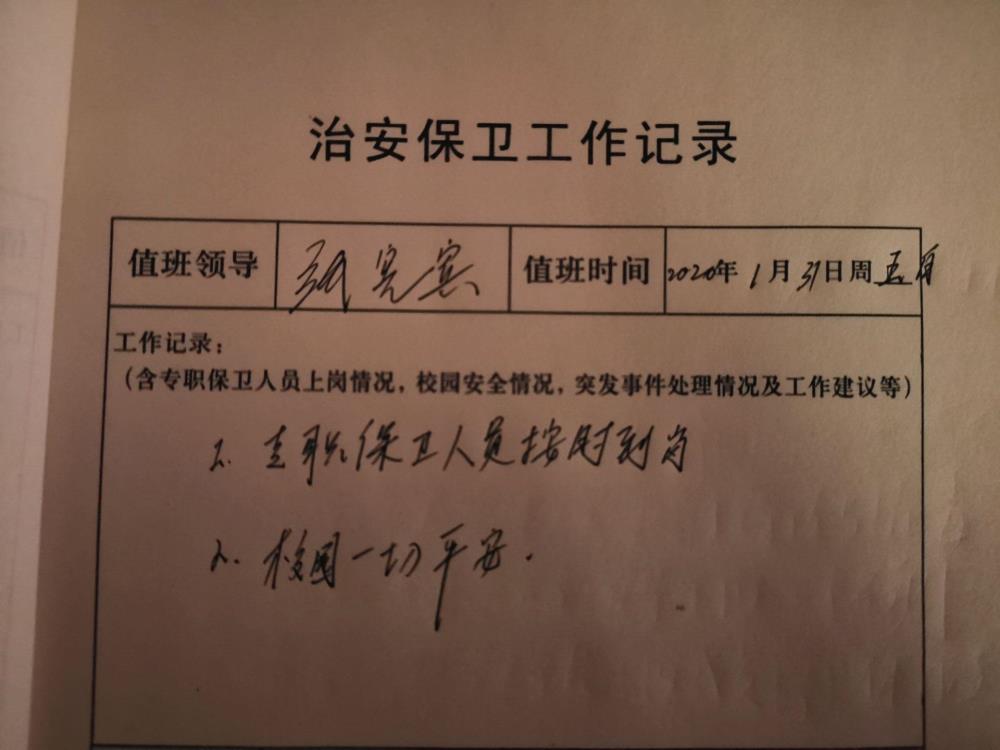 治安保卫工作记录
值班领导 张宪宾 值班时间 2020年1月31日周五
工作记录：
（含专职保卫人员上岗情况，校园安全情况，突发事件处理情况及工作建议等）
1. 专职保卫人员按时到岗
2. 校园一切平安.